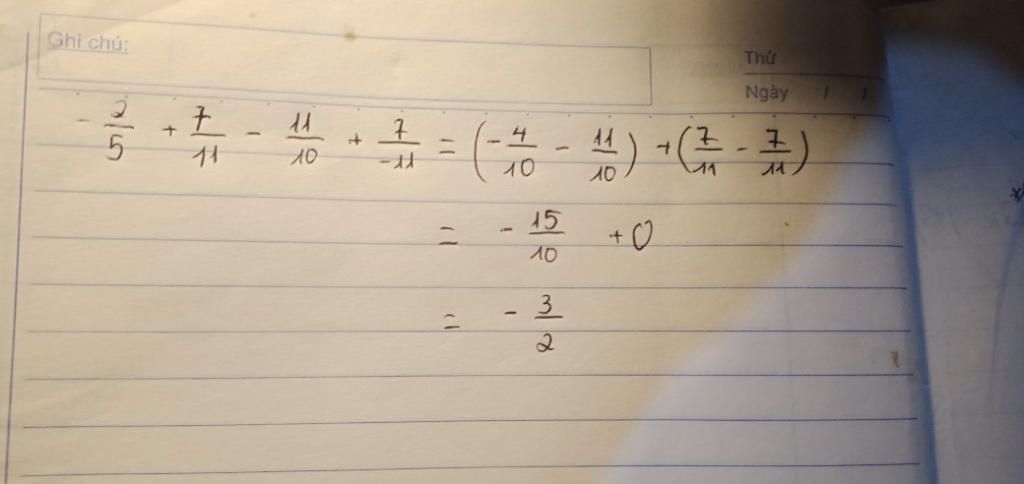 Ghi chú:
Thứ
Ngày / /
- 2/5 + 7/11 - 11/10 + 7/-11 = (- 4/10 - 11/10) + (7/11 - 7/11)
= - 15/10 + 0
= - 3/2